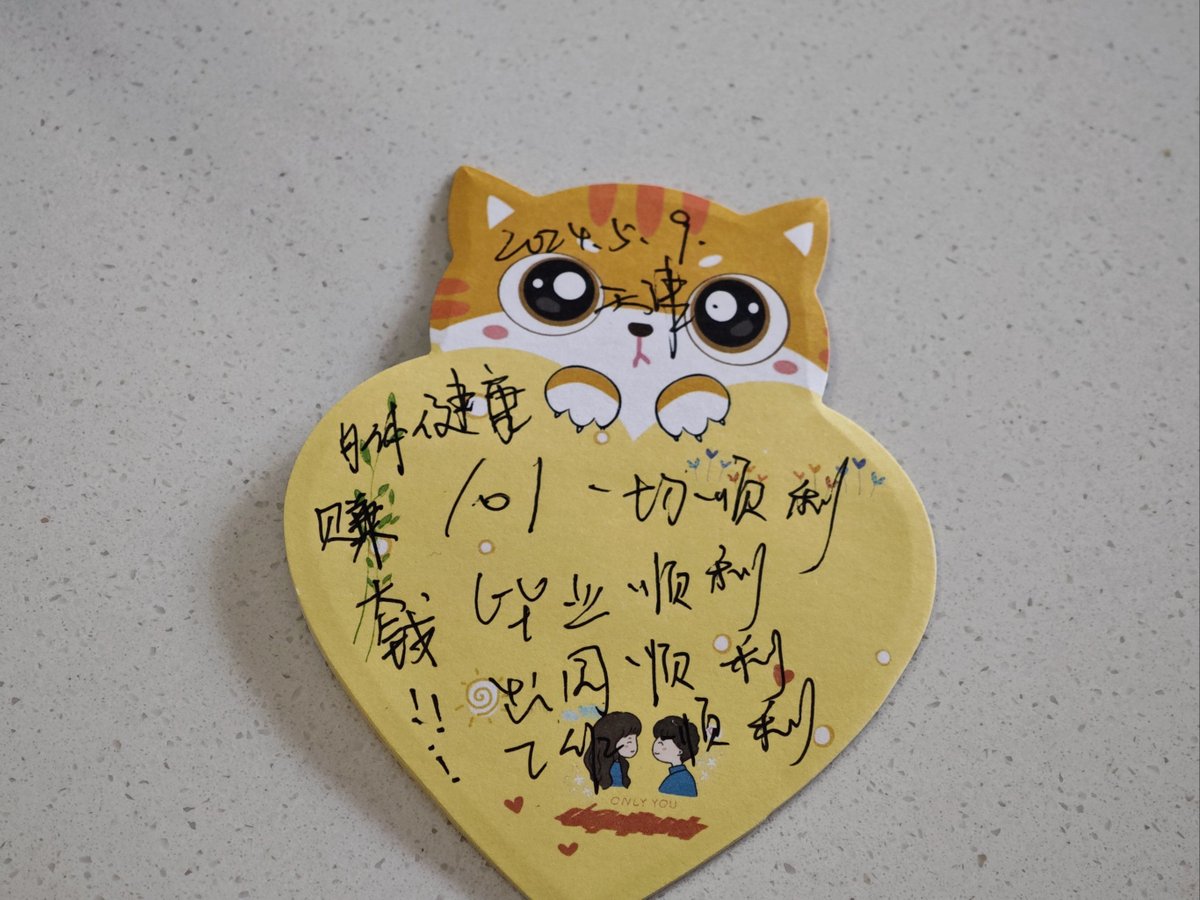 2024.5.9.
天津
身体健康
101 一切顺利
赚大钱!!!!
毕业顺利
出国顺利
工作顺利
ONLY YOU